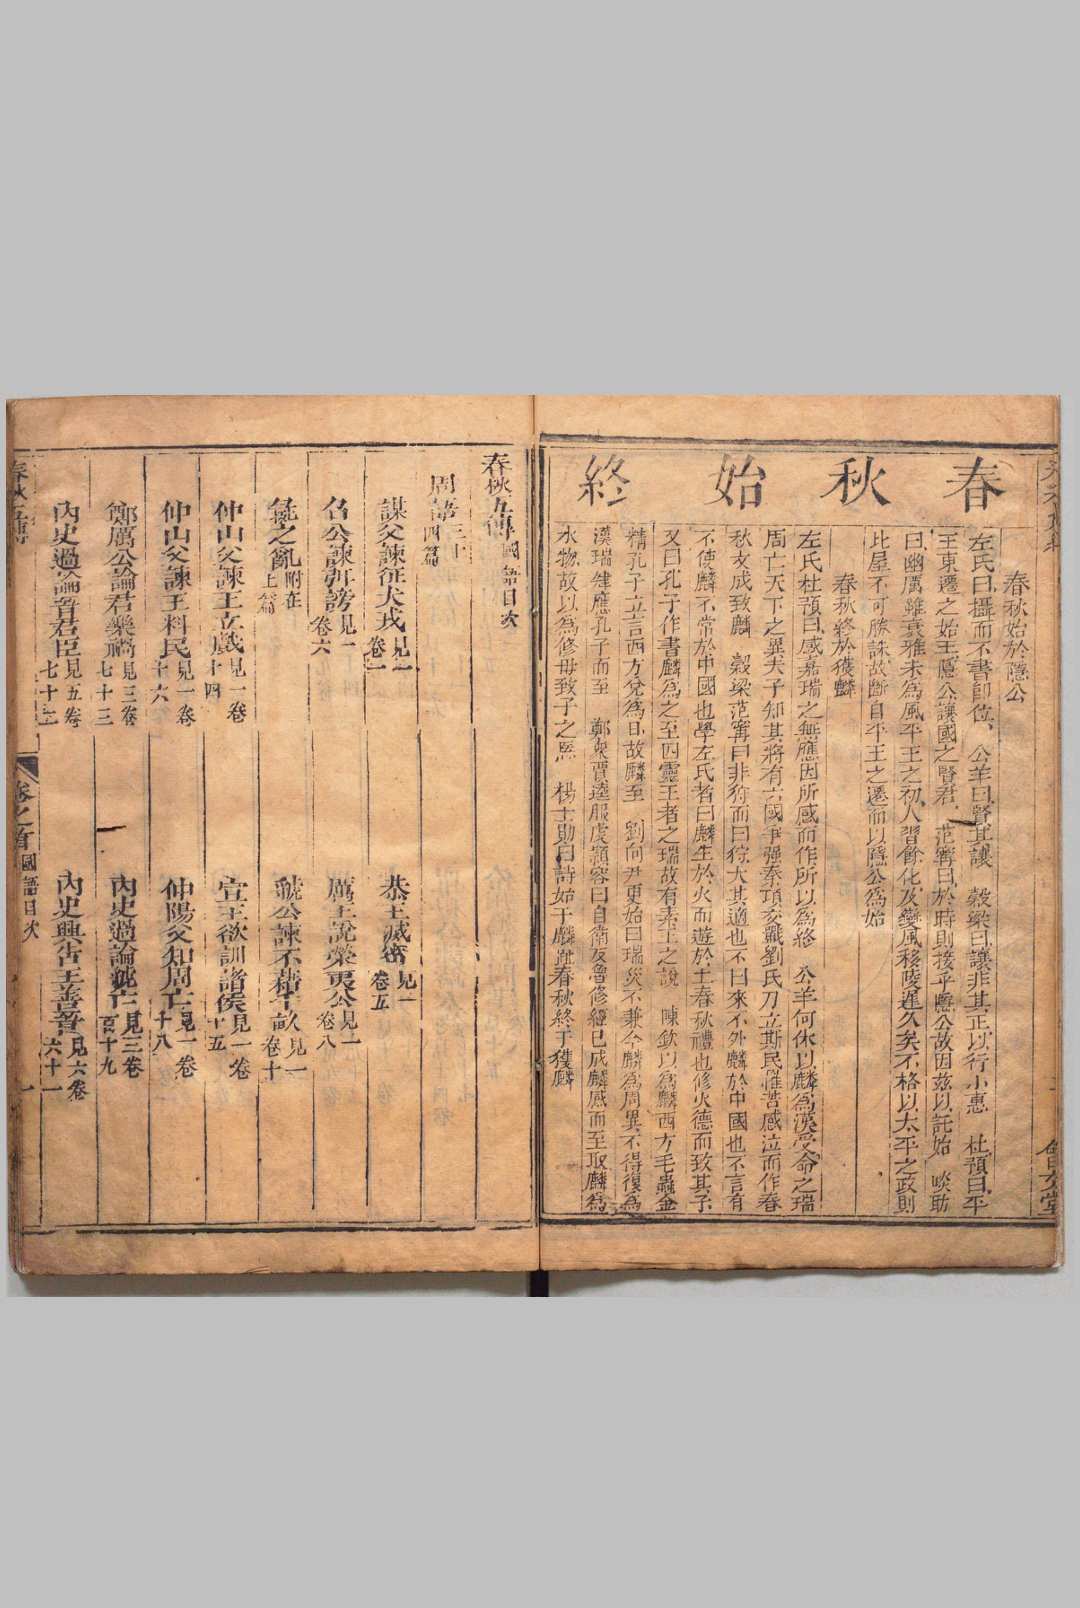 春秋始終
春秋始於隱公
左氏曰攝而不書卽位 公羊曰賢其讓 穀梁曰讓非其正以行小惠 杜預曰平
王東遷之始王隱公讓國之賢君 范甯曰於時則接乎隱公故因茲以託始 啖助
曰幽厲雖衰雅未爲風平王之初人習餘化及變風移陵遲久矣不格以太平之政則
比屋不可勝誅故斷自平王之遷而以隱公爲始
春秋終於獲麟
左氏杜預曰感嘉瑞之無應因所感而作所以爲終 公羊何休以麟爲漢受命之瑞
周亡天下之異夫子知其將有六國爭强秦項交戰劉氏乃立斯民罹苦感泣而作春
秋文成致麟 穀梁范甯曰非狩而曰狩大其適也不曰來不外麟於中國也不言有
不使麟不常於中國也學左氏者曰麟生於火而遊於土春秋禮也修火德而致其子
又曰孔子作書麟爲之至四靈王者之瑞故有素王之說 陳欽以爲麟西方毛蟲金
精孔子立言西方兌爲口故麟至 劉向尹更始曰瑞災不兼今麟爲周異不得復爲
漢瑞肂應孔子而至 鄭衆賈逵服虔潁容曰自衛反魯修經已成麟感而至取麟爲
水物故以爲修母致子之應 楊士勛曰詩始于麟趾春秋終于獲麟
春秋五傳國語目次
周語三十四篇
謀父諫征犬戎見一卷一
恭王滅密見一卷五
召公諫弭謗見一卷六
厲王說榮夷公見一卷八
彘之亂附在上篇
虢公諫不藉千畝見一卷十
仲山父諫王立戲見一卷十四
宣王欲訓諸侯見一卷十五
仲山父諫王料民見一卷十六
仲陽父知周亡見一卷十八
鄭厲公論君樂禍見三卷七十三
內史過論虢亡見三卷百十九
內史過論晉君臣見五卷七十二
內史興告王善晉見六卷六十一
春秋五傳
卷之首 國語目次 一